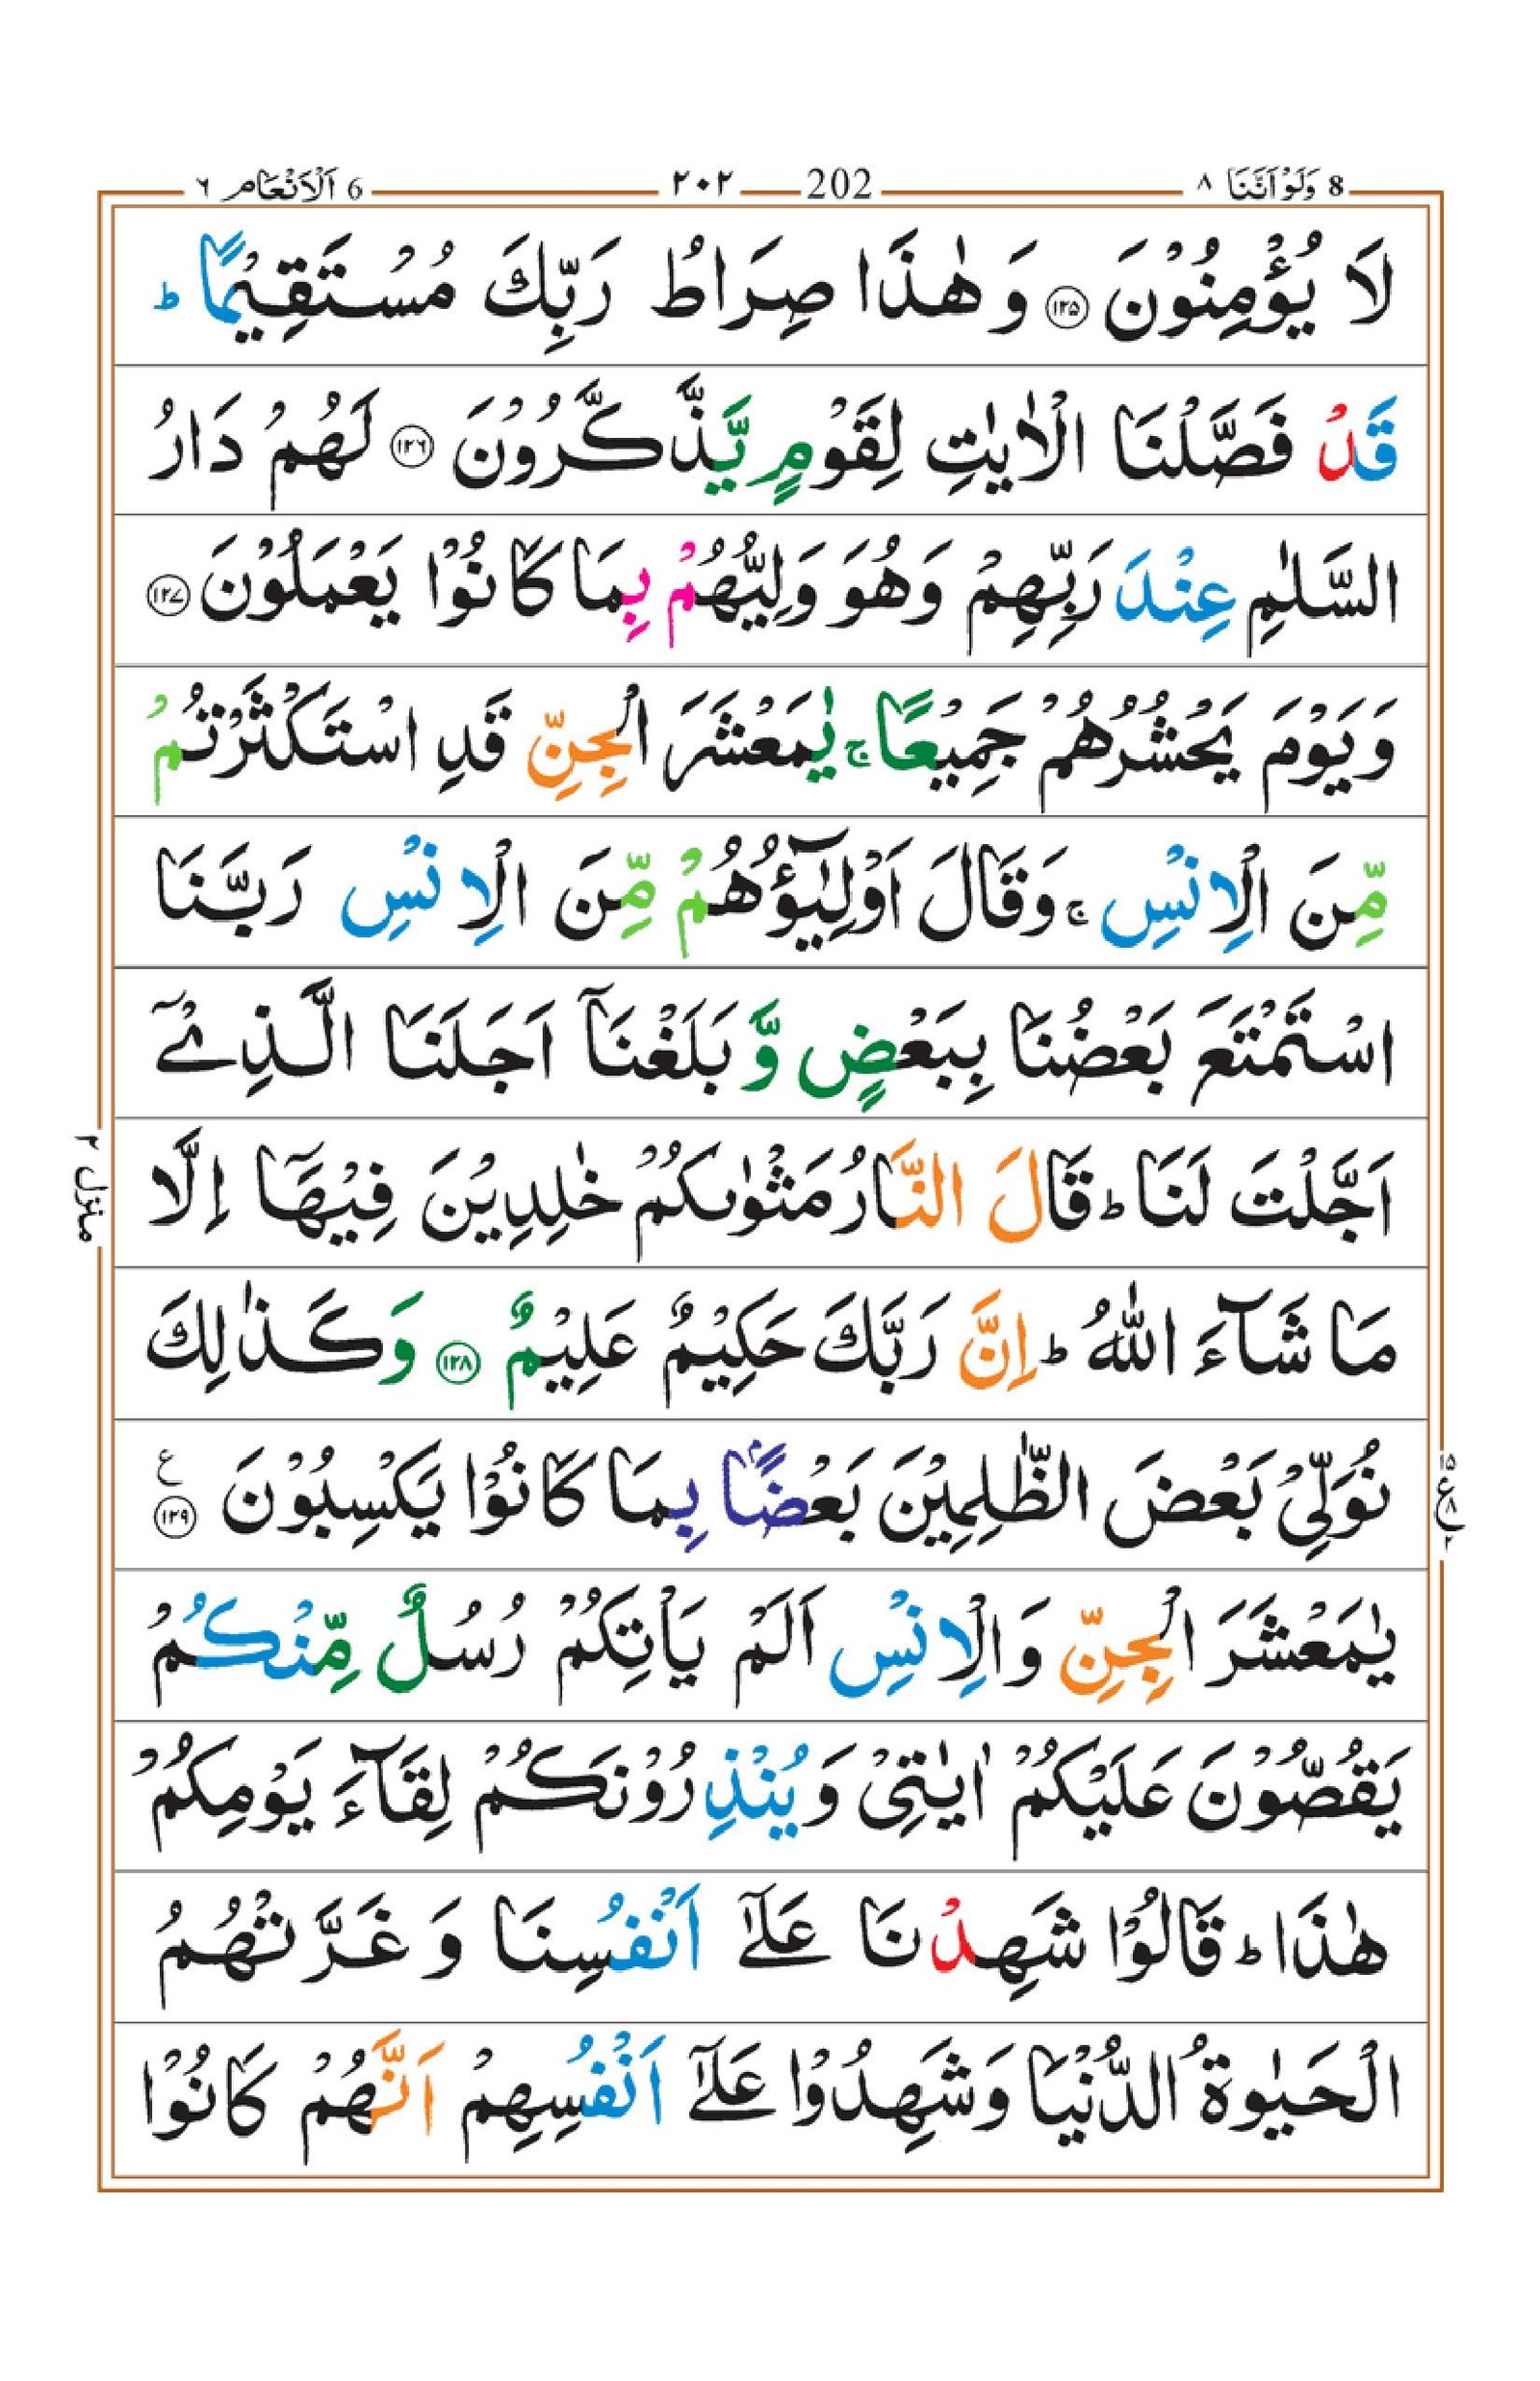 8 وَلَوْ اَنَّنَا ٨ 202 ٢٠٢ 6 اَلْاَنْعَام ٦
لَا يُؤْمِنُوْنَ ﴿۱۲۵﴾ وَ هٰذَا صِرَاطُ رَبِّكَ مُسْتَقِيْمًا ؕ
قَدْ فَصَّلْنَا الْاٰيٰتِ لِقَوْمٍ يَّذَّكَّرُوْنَ ﴿۱۲۶﴾ لَهُمْ دَارُ
السَّلٰمِ عِنْدَ رَبِّهِمْ وَهُوَ وَلِيُّهُمْ بِمَا كَانُوْا يَعْمَلُوْنَ ﴿۱۲۷﴾
وَيَوْمَ يَحْشُرُهُمْ جَمِيْعًا ۚ يٰمَعْشَرَ الْجِنِّ قَدِ اسْتَكْثَرْتُمْ
مِّنَ الْاِنْسِ ۚ وَقَالَ اَوْلِيٰٓؤُهُمْ مِّنَ الْاِنْسِ رَبَّنَا
اسْتَمْتَعَ بَعْضُنَا بِبَعْضٍ وَّ بَلَغْنَاۤ اَجَلَنَا الَّذِيْۤ
اَجَّلْتَ لَنَا ؕ قَالَ النَّارُ مَثْوٰىكُمْ خٰلِدِيْنَ فِيْهَاۤ اِلَّا
مَا شَآءَ اللّٰهُ ؕ اِنَّ رَبَّكَ حَكِيْمٌ عَلِيْمٌ ﴿۱۲۸﴾ وَ كَذٰلِكَ
نُوَلِّيْ بَعْضَ الظّٰلِمِيْنَ بَعْضًۢا بِمَا كَانُوْا يَكْسِبُوْنَ ﴿۱۲۹﴾ ع
يٰمَعْشَرَ الْجِنِّ وَالْاِنْسِ اَلَمْ يَاْتِكُمْ رُسُلٌ مِّنْكُمْ
يَقُصُّوْنَ عَلَيْكُمْ اٰيٰتِيْ وَ يُنْذِرُوْنَكُمْ لِقَآءَ يَوْمِكُمْ
هٰذَا ؕ قَالُوْا شَهِدْنَا عَلٰۤى اَنْفُسِنَا وَ غَرَّتْهُمُ
الْحَيٰوةُ الدُّنْيَا وَشَهِدُوْا عَلٰۤى اَنْفُسِهِمْ اَنَّهُمْ كَانُوْا
منزل ٢
١٥ ع ٨ ٢